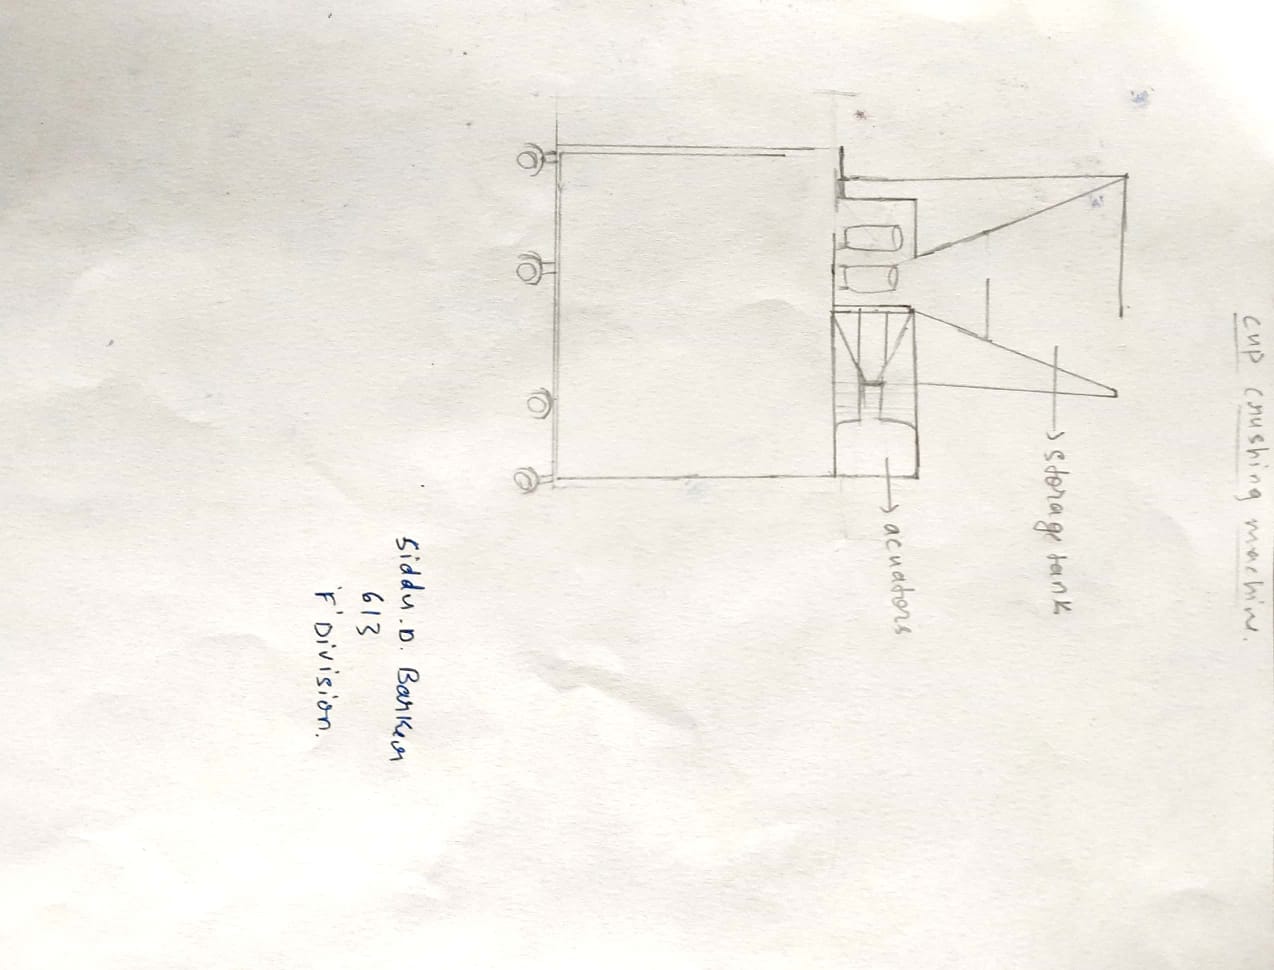 cup crushing machine.
→ storage tank
→ acuators
Siddu.D. Banker
613
'F' Division.